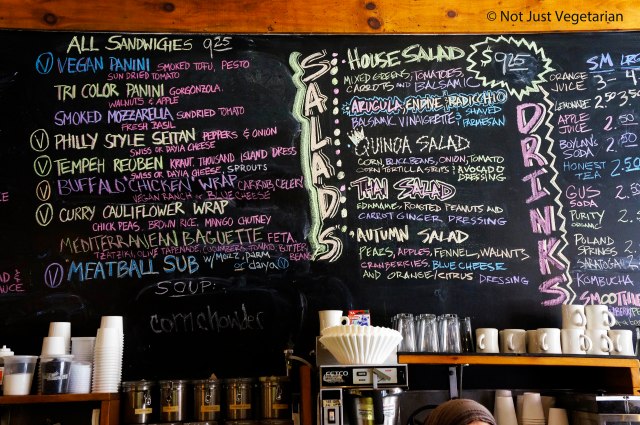 © Not Just Vegetarian
ALL SANDWICHES 9.25
V VEGAN PANINI SMOKED TOFU, PESTO
SUN DRIED TOMATO
TRI COLOR PANINI GORGONZOLA,
WALNUTS & APPLE
SMOKED MOZZARELLA SUNDRIED TOMATO
FRESH BASIL
V PHILLY STYLE SEITAN PEPPERS & ONION
SWISS OR DAIYA CHEESE
V TEMPEH REUBEN KRAUT, THOUSAND ISLAND DRESS
SWISS OR DAIYA CHEESE, SPROUTS
V BUFFALO CHICKEN WRAP CARROTS, CELERY
VEGAN RANCH or BLUE CHEESE
V CURRY CAULIFLOWER WRAP
CHICK PEAS, BROWN RICE, MANGO CHUTNEY
MEDITERRANEAN BAGUETTE FETA,
TZATZIKI, OLIVE TAPENADE CUCUMBERS, TOMATO, BUTTER BEANS
V MEATBALL SUB w/ MOZZ, PARM
or daiya V
SOUP:
corn chowder
SALADS
HOUSE SALAD
$9.25
MIXED GREENS, TOMATOES,
CARROTS AND BALSAMIC
ARUGULA, ENDIVE, RADICCHIO
BALSAMIC VINAIGRETTE, SHAVED PARMESAN
QUINOA SALAD
CORN, BLACK BEANS, ONION, TOMATO
CORN TORTILLA STRIPS & AVOCADO
DRESSING
THAI SALAD
EDAMAME, ROASTED PEANUTS AND
CARROT GINGER DRESSING
AUTUMN SALAD
PEARS, APPLES, FENNEL, WALNUTS
CRANBERRIES, BLUE CHEESE
AND ORANGE/CITRUS DRESSING
DRINKS
SM LRG
ORANGE JUICE 3- 4
LEMONADE 2.50 3.50
APPLE JUICE 2.50
BOYLAN'S SODA 2.
HONEST TEA 2.50
GUS SODA 2.
PURITY ORGANIC 2.
POLAND SPRINGS
SARATOGA
KOMBUCHA
SMOOTHIE
FETCO